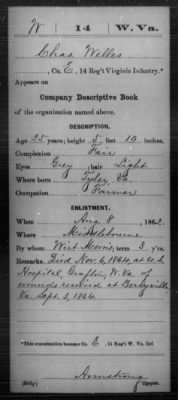 W | 14 | W. Va.
Chas. Welles
, Co. E, 14 Reg't Virginia Infantry.*
Appears on
Company Descriptive Book
of the organization named above.
DESCRIPTION.
Age 25 years; height 5 feet 10 inches.
Complexion Fair
Eyes Grey; hair Light
Where born Tyler Va.
Occupation Farmer
ENLISTMENT.
When Aug 8, 1862.
Where Middlebourne
By whom Wirt Morris; term 3 y'rs.
Remarks: Died Nov. 6, 1864, at U.S.
Hospital, Grafton, W. Va. of
wounds received at Berryville
Va. Sept. 3, 1864.
*This organization became Co. E, 14 Reg't W. Va. Inf.
Armstrong
Copyist.